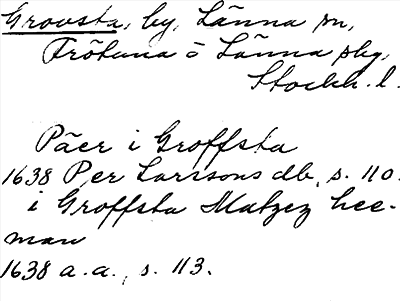 Grovsta, by, Länna sn,
Frötuna o Länna slg,
Stockh. l.
Päer i Groffsta
1638 Per Larssons db, s. 110.
i Groffsta Matzez hee-
man
1638 a.a., s. 113.